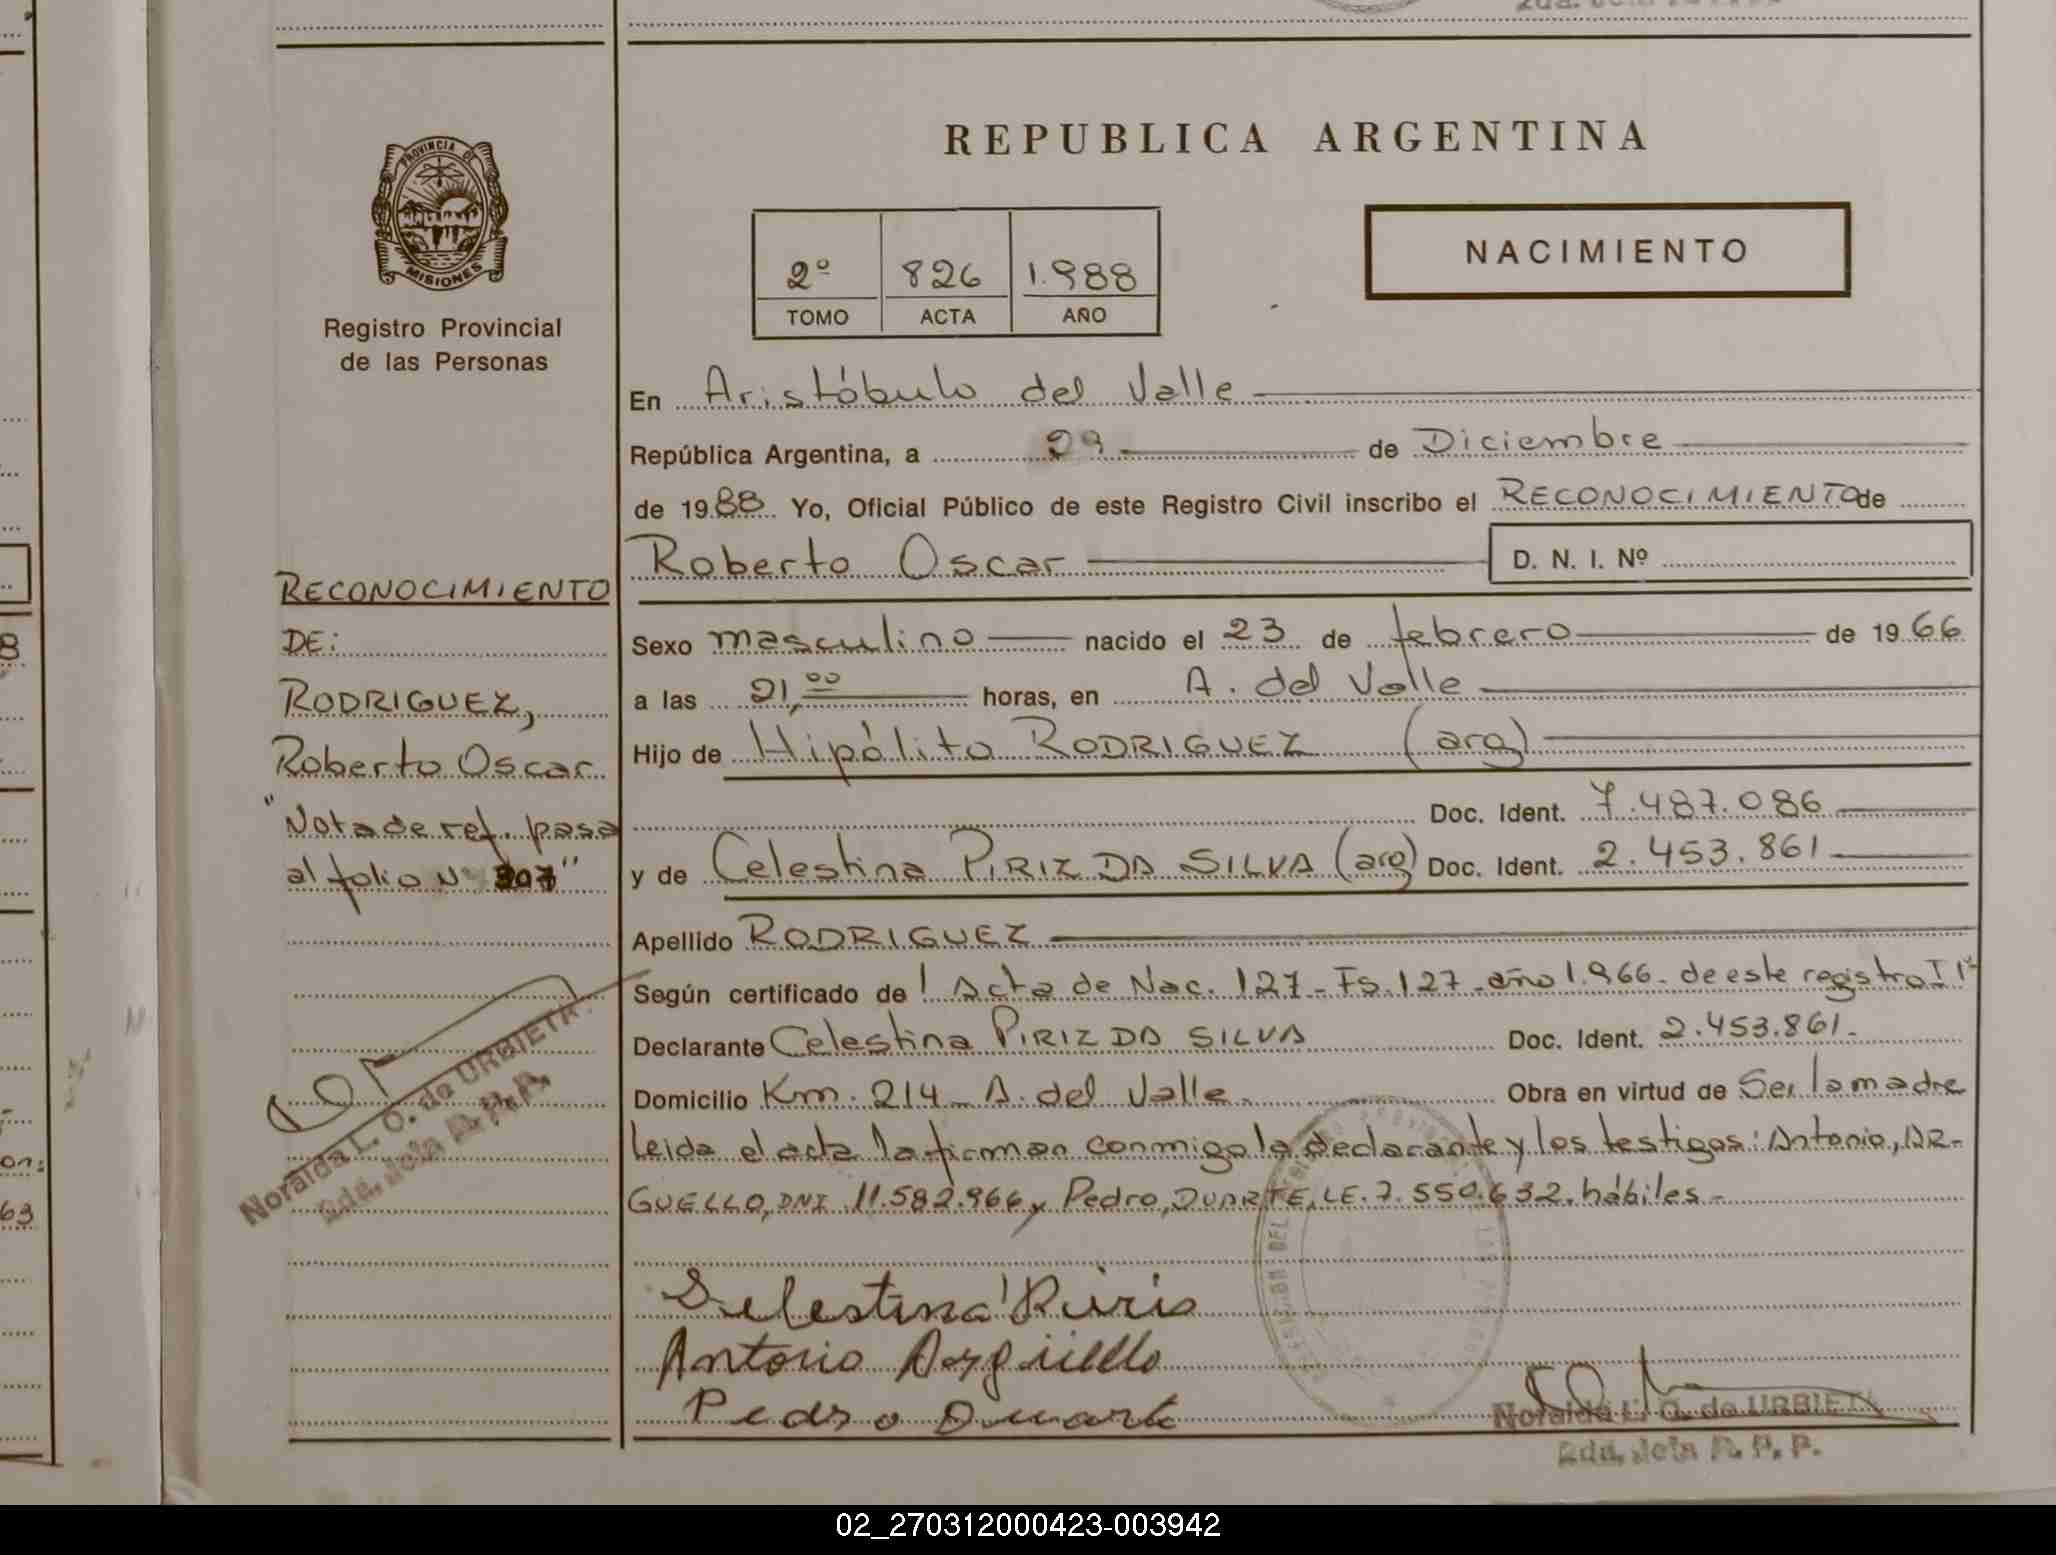 REPUBLICA ARGENTINA
PROVINCIA DE
MISIONES
Registro Provincial
de las Personas
2º 826 1.988
TOMO ACTA AÑO
NACIMIENTO
En Aristóbulo del Valle
República Argentina, a 29 de Diciembre
de 1988 Yo, Oficial Público de este Registro Civil inscribo el RECONOCIMIENTO de
Roberto Oscar D. N. I. Nº
Sexo masculino nacido el 23 de febrero de 1966
a las 21,00 horas, en A. del Valle
Hijo de Hipólito RODRIGUEZ (arg)
Doc. Ident. 7.487.086
y de Celestina PIRIZ DA SILVA (arg) Doc. Ident. 2.453.861
Apellido RODRIGUEZ
Según certificado de Acta de Nac. 127 - Fs. 127 - año 1.966 - de este registro
Declarante Celestina PIRIZ DA SILVA Doc. Ident. 2.453.861.-
Domicilio Km. 214 - A. del Valle.- Obra en virtud de Ser la madre
leida el acta la firman conmigo la declarante y los testigos: Antonio, AR-
GUELLO, DNI 11.582.966 y Pedro, DUARTE, LE. 7.550.632. hábiles.-
Selestina Piris
Antonio Argüello
Pedro Duarte
Noralda L. O. de URBIETA
2da. Jefa R. P. P.
RECONOCIMIENTO
DE:
RODRIGUEZ,
Roberto Oscar
"Nota de ref. pasa
al folio Nº 307"
Noralda L. O. de URBIETA
2da. Jefa R. P. P.
02_270312000423-003942